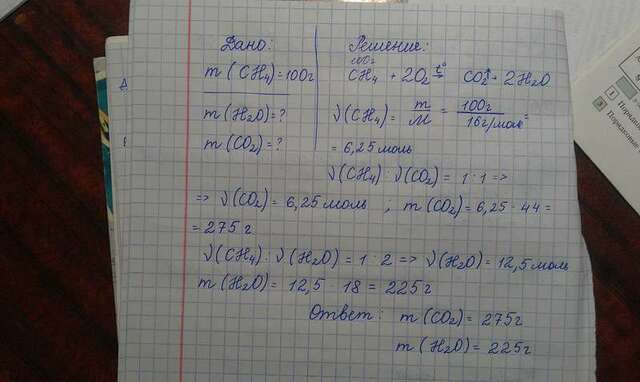 Дано:
Решение:
m(CH₄)=100г
100г
CH₄ + 2O₂ t°→ CO₂↑ + 2H₂O
m(H₂O)=?
m(CO₂)=?
ν(CH₄) = m/M = 100г/16г/моль =
= 6,25 моль
ν(CH₄):ν(CO₂) = 1:1 =>
=> ν(CO₂) = 6,25 моль ; m(CO₂)= 6,25 · 44 =
= 275г
ν(CH₄):ν(H₂O) = 1:2 => ν(H₂O) = 12,5 моль
m(H₂O) = 12,5 · 18 = 225г
Ответ: m(CO₂) = 275г
m(H₂O) = 225г